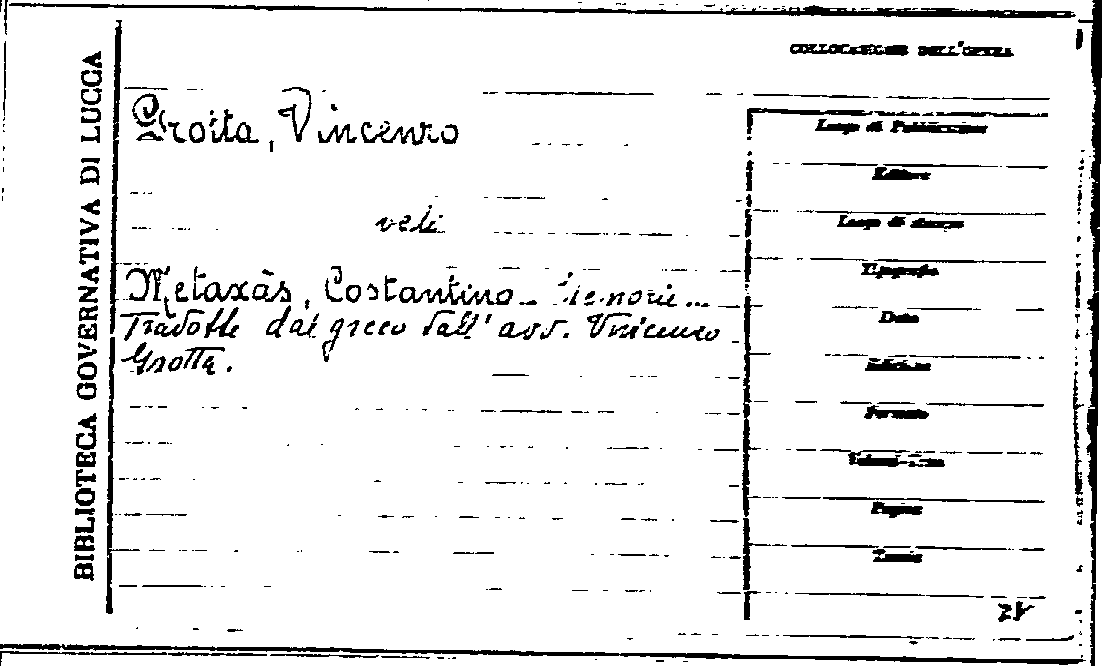 COLLOCAZIONE DELL'OPERA
BIBLIOTECA GOVERNATIVA DI LUCCA
Grotta, Vincenzo
vedi
Metaxàs, Costantino - Memorie...
Tradotte dal greco dall' avv. Vincenzo
Grotta.
Luogo di Pubblicazione
Editore
Luogo di stampa
Tipografia
Data
Edizione
Formato
Pagine